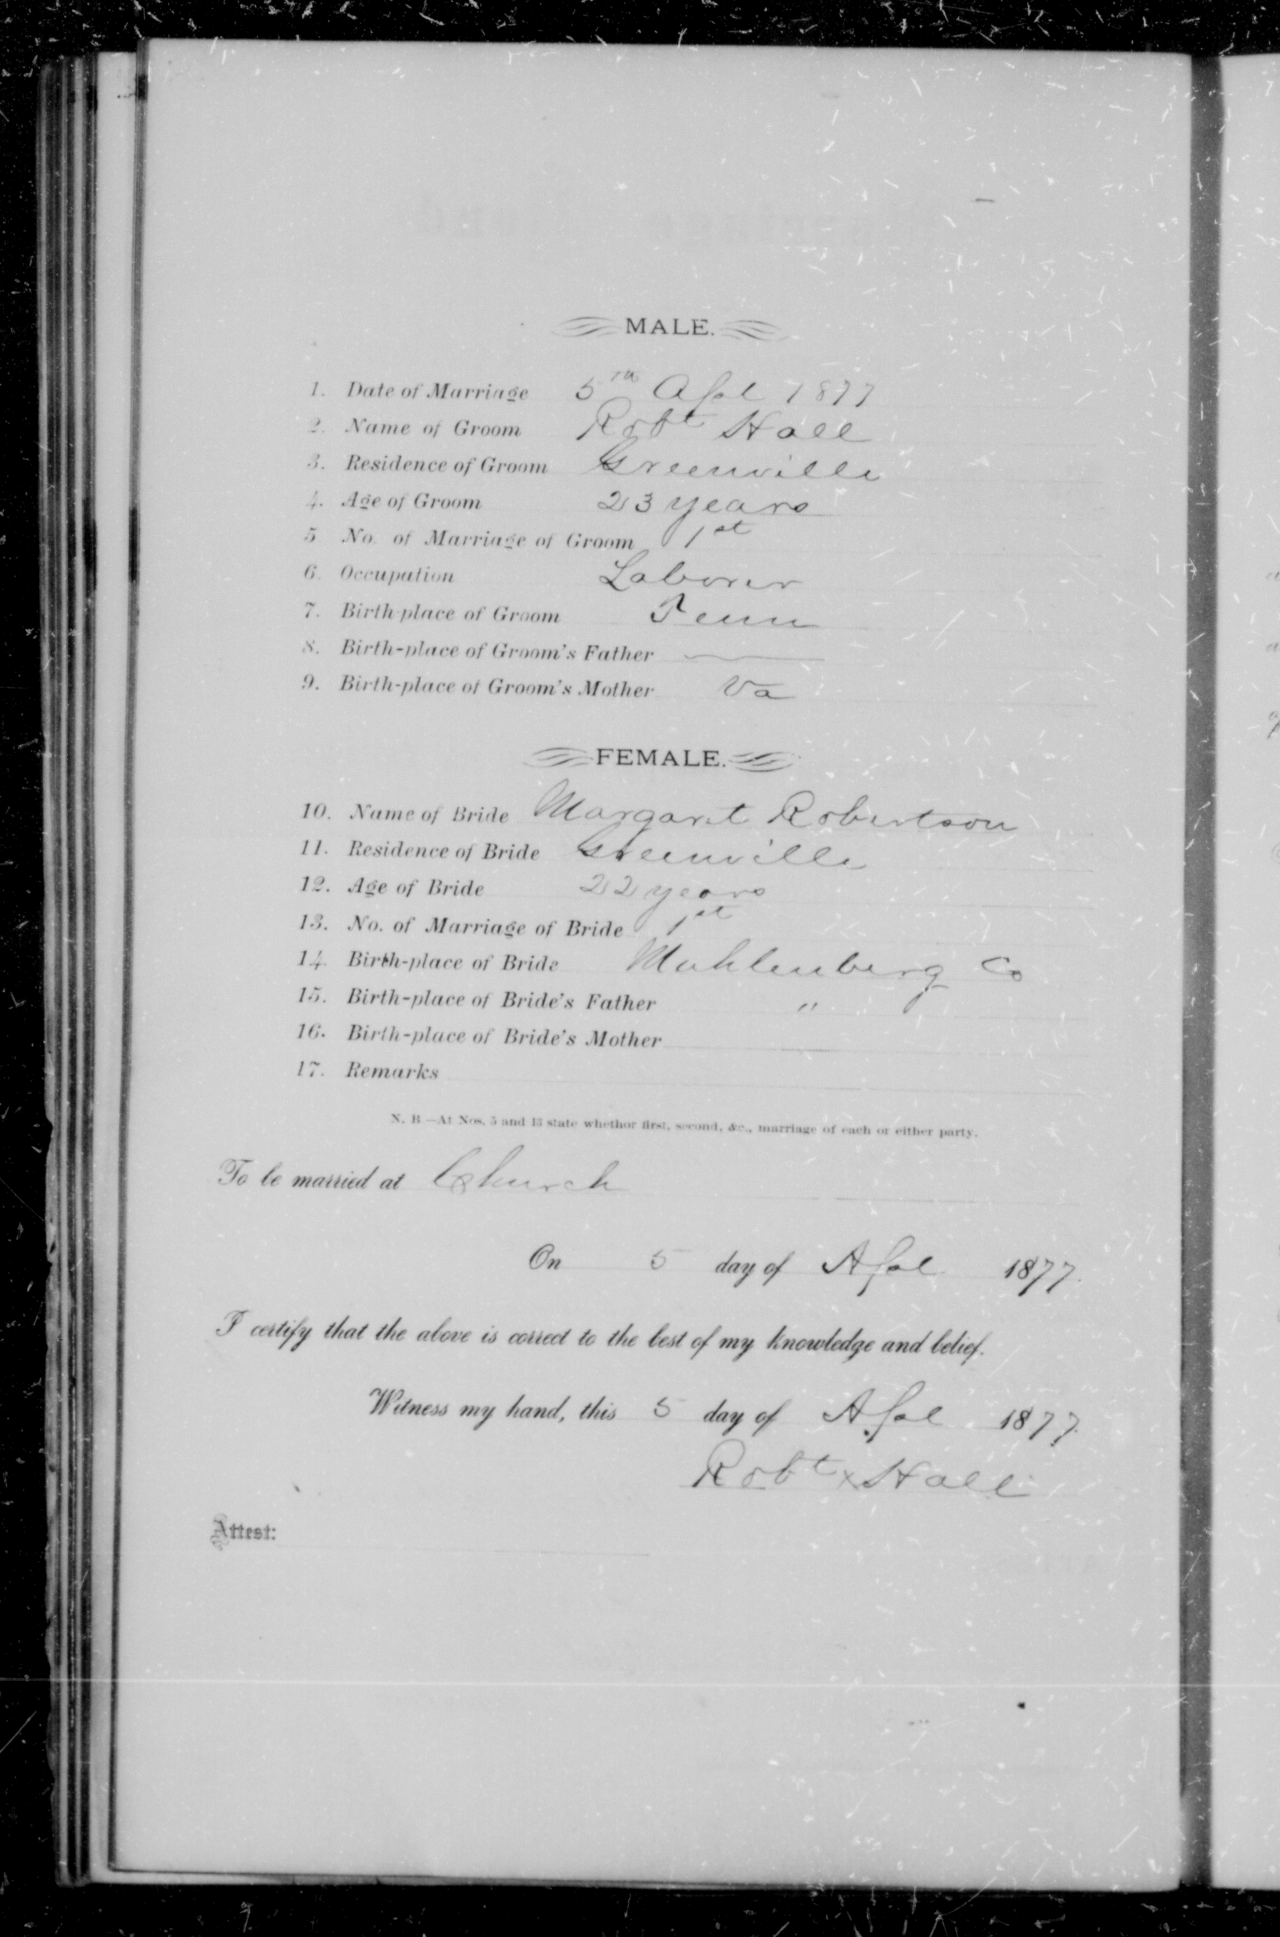 MALE.
1. Date of Marriage 5th Apl 1877
2. Name of Groom Robt Hall
3. Residence of Groom Greenville
4. Age of Groom 23 years
5 No. of Marriage of Groom 1st
6. Occupation Laborer
7. Birth-place of Groom Tenn
8. Birth-place of Groom's Father —
9. Birth-place of Groom's Mother Va
FEMALE.
10. Name of Bride Margaret Robertson
11. Residence of Bride Greenville
12. Age of Bride 22 years
13. No. of Marriage of Bride 1st
14 Birth-place of Bride Muhlenberg Co
15. Birth-place of Bride's Father "
16. Birth-place of Bride's Mother
17. Remarks
N. B —At Nos. 5 and 13 state whether first, second, &c., marriage of each or either party.
To be married at Church
On 5 day of Apl 1877.
I certify that the above is correct to the best of my knowledge and belief.
Witness my hand, this 5 day of Apl 1877.
Robt x Hall
Attest: